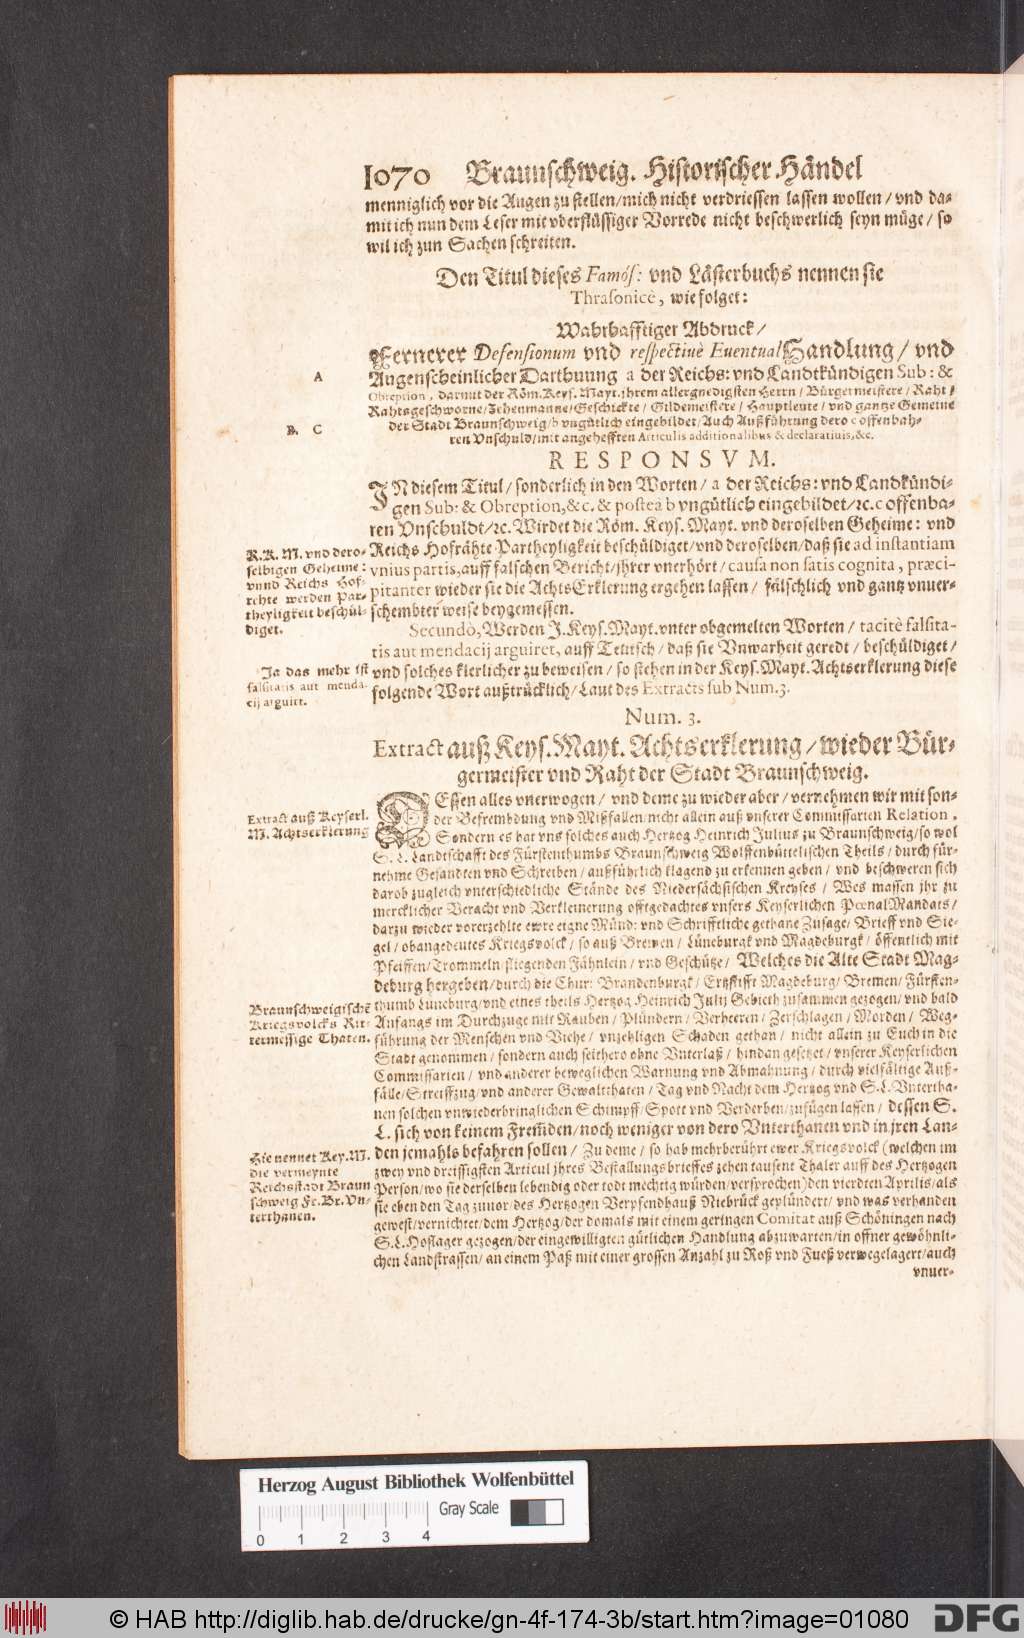 1070 Braunschweig. Historischer Händel
menniglich vor die Augen zu stellen/mich nicht verdriessen lassen wollen/ vnd da-
mit ich nun dem Leser mit vberflüssiger Vorrede nicht beschwerlich seyn müge/ so
wil ich zun Sachen schreiten.
Den Titul dieses Famós: vnd Lästerbuchs nennen sie
Thrasonicè, wie folget:
Wahrhafftiger Abdruck/
Fernerer Defensionum vnd respectivè Eventual Handlung/ vnd
A
Augenscheinlicher Darthuung a der Reichs: vnd Landtkündigen Sub: &
Obreption, darmit der Röm. Keys. Mayt. jhrem allergnedigsten Herrn/ Bürgermeistere/ Raht/
Rahtsgeschworne/Zehenmanne/Geschickte/ Gildemeistere/ Hauptleute/ vnd gantze Gemeine
B. C
der Stadt Braunschweig/b vngütlich eingebildet/Auch Außführung dero c offenbah-
ren Vnschuld/mit angehefften Articulis additionalibus & declarativis,&c.
RESPONSVM.
IN diesem Titul/sonderlich in den Worten/ a der Reichs: vnd Landkündi-
gen Sub: & Obreption,&c. & posteà b vngütlich eingebildet/ꝛc. c offenba-
ren Vnschuldt/ꝛc. Wirdet die Röm. Keys. Mayt. vnd deroselben Geheime: vnd
Reichs Hofrähte Partheyligkeit beschüldiget/vnd deroselben/daß sie ad instantiam
vnius partis,auff falschen Bericht/jhrer vnerhört/ causa non satis cognita, præci-
pitanter wieder sie die AchtsErklerung ergehen lassen/ fälschlich vnd gantz vnuer-
schembter weise beygemessen.
K. K. M. vnd dero-
selbigen Geheime:
vnnd Reichs Hof-
rehte werden Par-
theyligkeit beschül-
diget.
Secundò, Werden J. Keys. Mayt. vnter obgemelten Worten/ tacitè falsita-
tis aut mendacij arguiret, auff Teutsch/ daß sie Vnwarheit geredt/ beschüldiget/
vnd solches klerlicher zu beweisen/ so stehen in der Keys. Mayt. Achtserklerung diese
folgende Wort außtrücklich/Laut des Extracts sub Num. 3.
Ja das mehr ist
falsitatis aut menda-
cij arguirt.
Num. 3.
Extract auß Keys. Mayt. Achtserklerung/wieder Bür-
germeister vnd Raht der Stadt Braunschweig.
Extract auß Keyserl.
M. Achtserklerung
DEssen alles vnerwogen/ vnd deme zu wieder aber/ vernehmen wir mit son-
der Befrembdung vnd Mißfallen/nicht allein auß vnserer Commissarien Relation,
Sondern es hat vns solches auch Hertzog Heinrich Julius zu Braunschweig/so wol
S. L. Landtschafft des Fürstenthumbs Braunschweig Wolffenbüttelischen Theils/ durch für-
nehme Gesandten vnd Schreiben/ außführlich klagend zu erkennen geben/ vnd beschweren sich
darob zugleich vnterschiedliche Stände des Niedersächsischen Kreyses/ Wes massen jhr zu
mercklicher Veracht vnd Verkleinerung offtgedachtes vnsers Keyserlichen PoenalMandats/
darzu wieder vorerzehlte ewre eigne Münd: vnd Schrifftliche gethane Zusage/ Brieff vnd Sie-
gel/ obangedeutes Kriegsvolck/ so auß Bremen/ Lüneburgk vnd Magdeburgk/ öffentlich mit
Pfeiffen/Trommeln fliegenden Fähnlein/ vnd Geschütze/ Welches die Alte Stadt Mag-
deburg hergeben/durch die Chur: Brandenburgk/ Ertzstifft Magdeburg/ Bremen/ Fürsten-
thumb Luneburg/vnd eines theils Hertzog Heinrich Julij Gebieth zusammen gezogen/ vnd bald
Anfangs im Durchzuge mit Rauben/ Plündern/ Verheeren/ Zerschlagen/ Morden/ Weg-
führung der Menschen vnd Viehe/ vnzehligen Schaden gethan/ nicht allein zu Euch in die
Stadt genommen/ sondern auch seithero ohne Vnterlaß/ hindan gesetzet/ vnserer Keyserlichen
Commissarien/ vnd anderer beweglichen Warnung vnd Abmahnung/ durch vielfältige Auß-
fälle/Streiffzug/vnd anderer Gewaltthaten/ Tag vnd Nacht dem Hertzog vnd S. L. Vntertha-
nen solchen vnwiederbringlichen Schimpff/Spott vnd Verderben/zufügen lassen/ dessen S.
L. sich von keinem Fremden/noch weniger von dero Vnterthanen vnd in jren Lan-
den jemahls befahren sollen/ Zu deme/ so hab mehrberührt ewer Kriegsvolck (welchen im
zwey vnd dreissigsten Articul jhres Bestallungsbrieffes zehen tausent Thaler auff des Hertzogen
Person/wo sie derselben lebendig oder todt mechtig würden/versprochen) den vierdten Aprilis/als
sie eben den Tag zuuor/des Hertzogen Verpfendhauß Niebrück geplündert/ vnd was verhanden
gewest/vernichtet/dem Hertzog/der domals mit einem geringen Comitat auß Schöningen nach
S. L. Hoflager gezogen/der eingewilligten gütlichen Handlung abzuwarten/in offner gewöhnli-
chen Landstrassen/ an einem Paß mit einer grossen Anzahl zu Roß vnd Fueß verwegelagert/auch
vnuer-
Braunschweigische
Kriegsvolcks Rit-
termessige Thaten.
Hie nennet Key. M.
die vermeynte
Reichsstadt Braun
schweig Fr. Br. Vn-
terthanen.
Herzog August Bibliothek Wolfenbüttel
Gray Scale
0 1 2 3 4
© HAB http://diglib.hab.de/drucke/gn-4f-174-3b/start.htm?image=01080
DFG